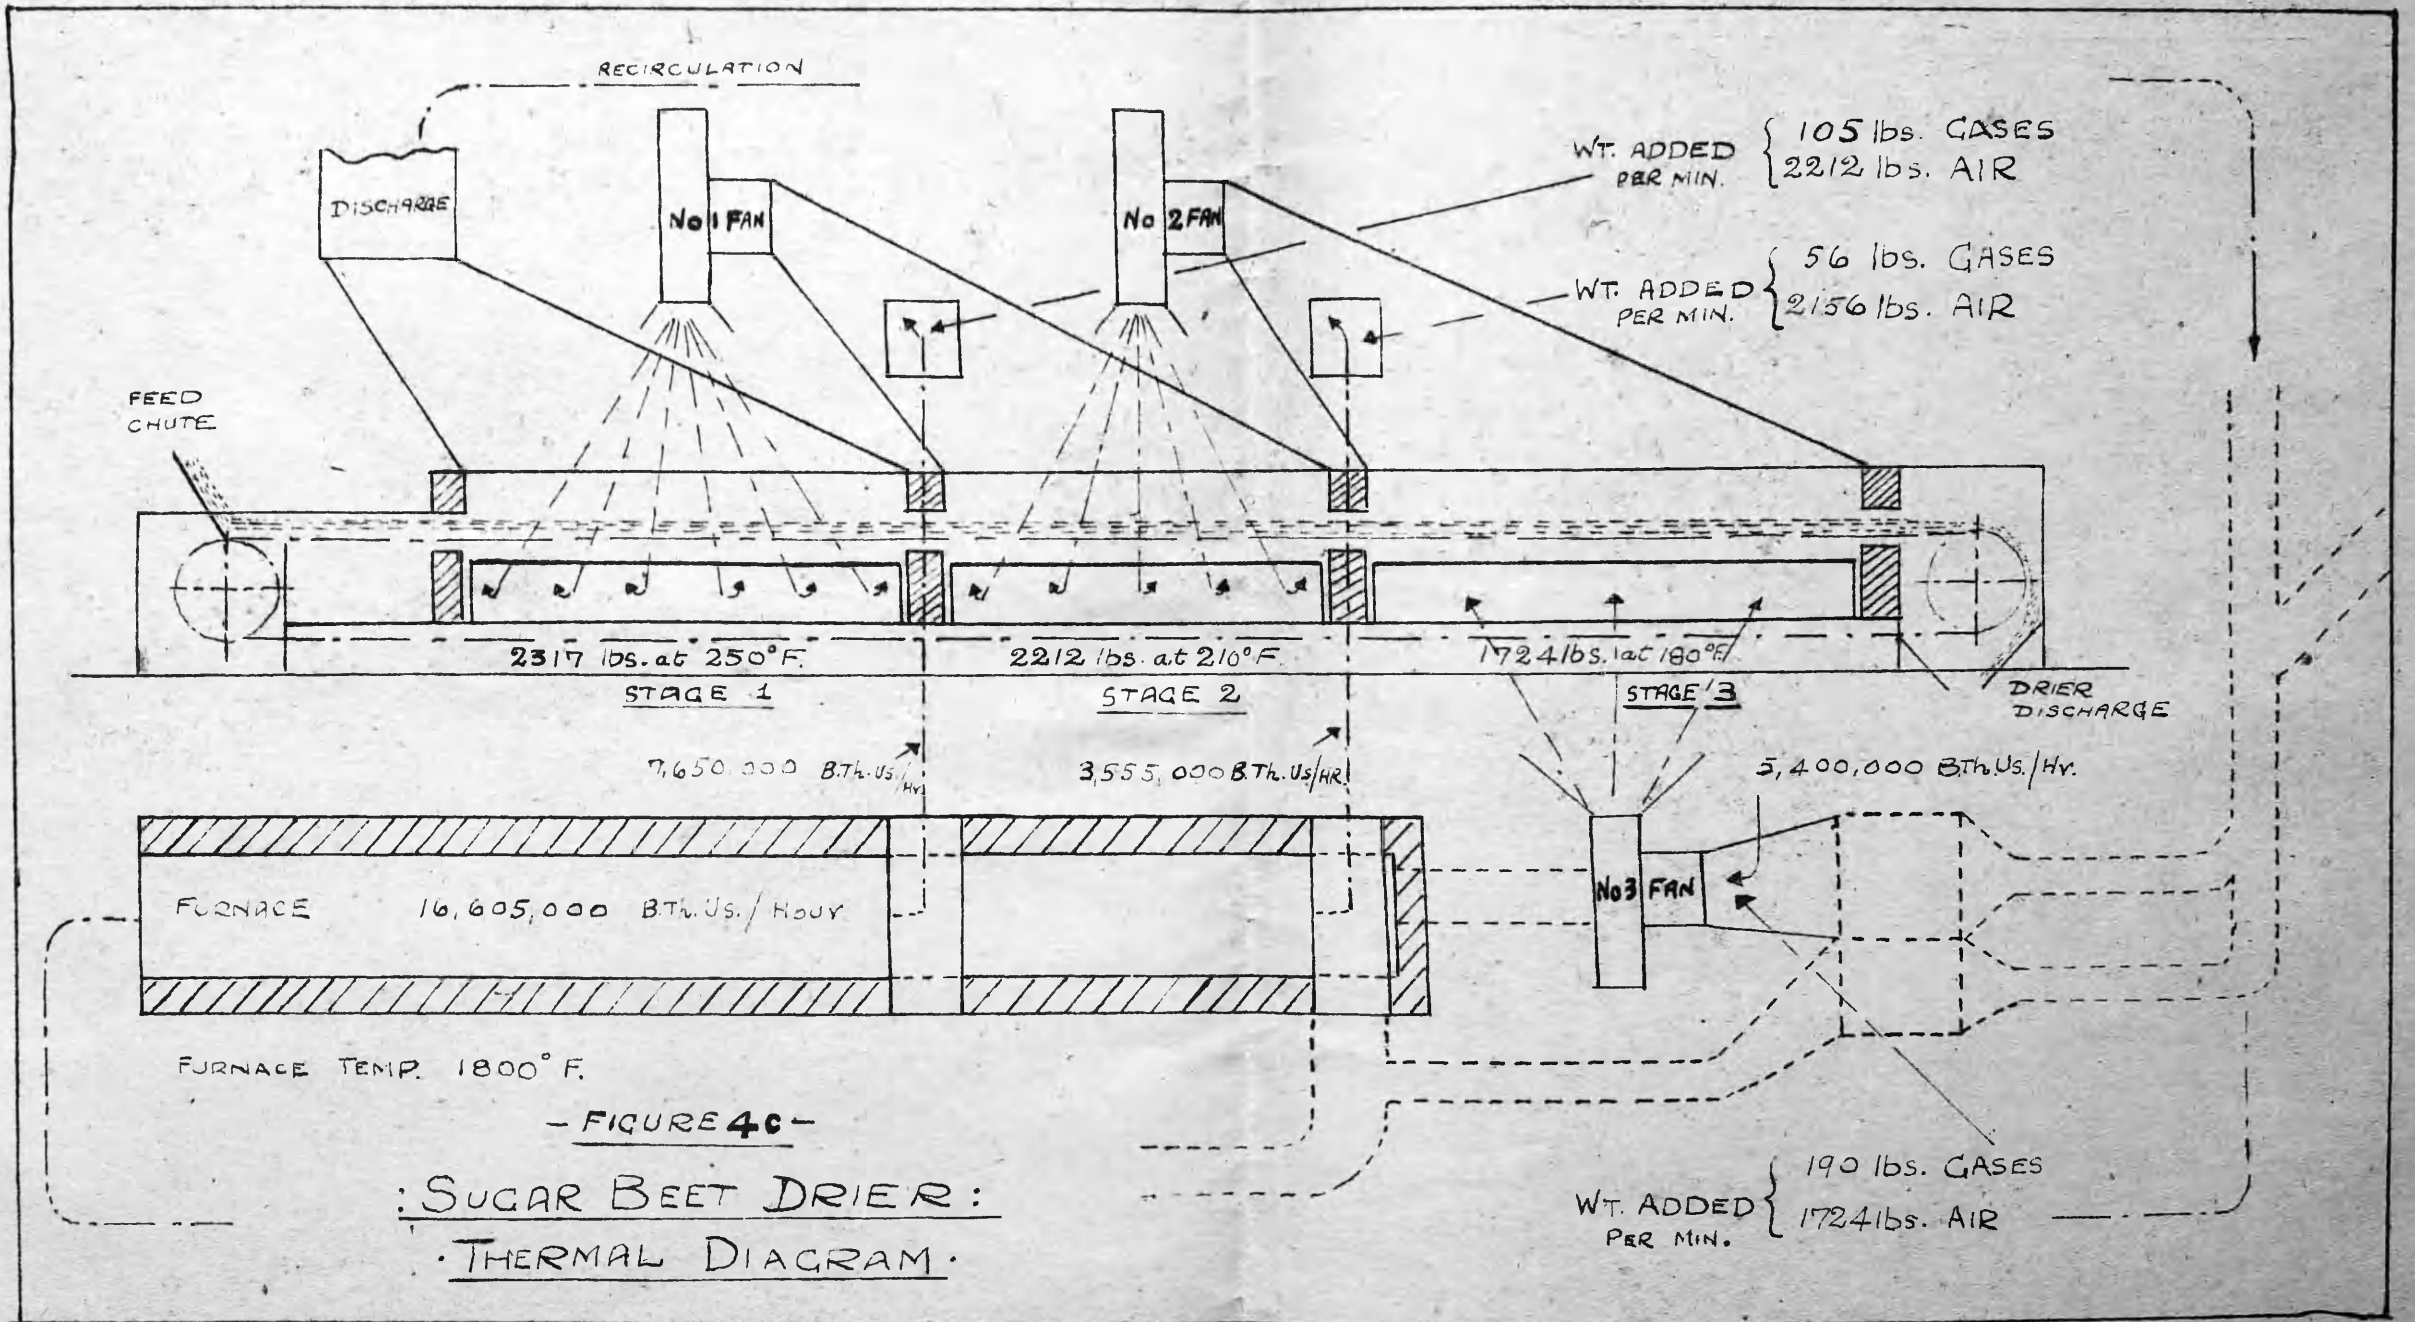 RECIRCULATION
DISCHARGE
No 1 FAN
No 2 FAN
WT. ADDED
PER MIN.
105 lbs. GASES
2212 lbs. AIR
WT. ADDED
PER MIN.
56 lbs. GASES
2156 lbs. AIR
FEED
CHUTE
2317 lbs. at 250°F.
STAGE 1
2212 lbs. at 210°F.
STAGE 2
1724 lbs. at 180°F.
STAGE 3
DRIER
DISCHARGE
7,650,000 B.Th.Us/Hr.
3,555,000 B.Th.Us/HR.
5,400,000 B.Th.Us./Hr.
FURNACE 16,605,000 B.Th.Us./Hour
No 3 FAN
FURNACE TEMP. 1800°F.
- FIGURE 4c -
: SUGAR BEET DRIER :
. THERMAL DIAGRAM .
WT. ADDED
PER MIN.
190 lbs. GASES
1724 lbs. AIR